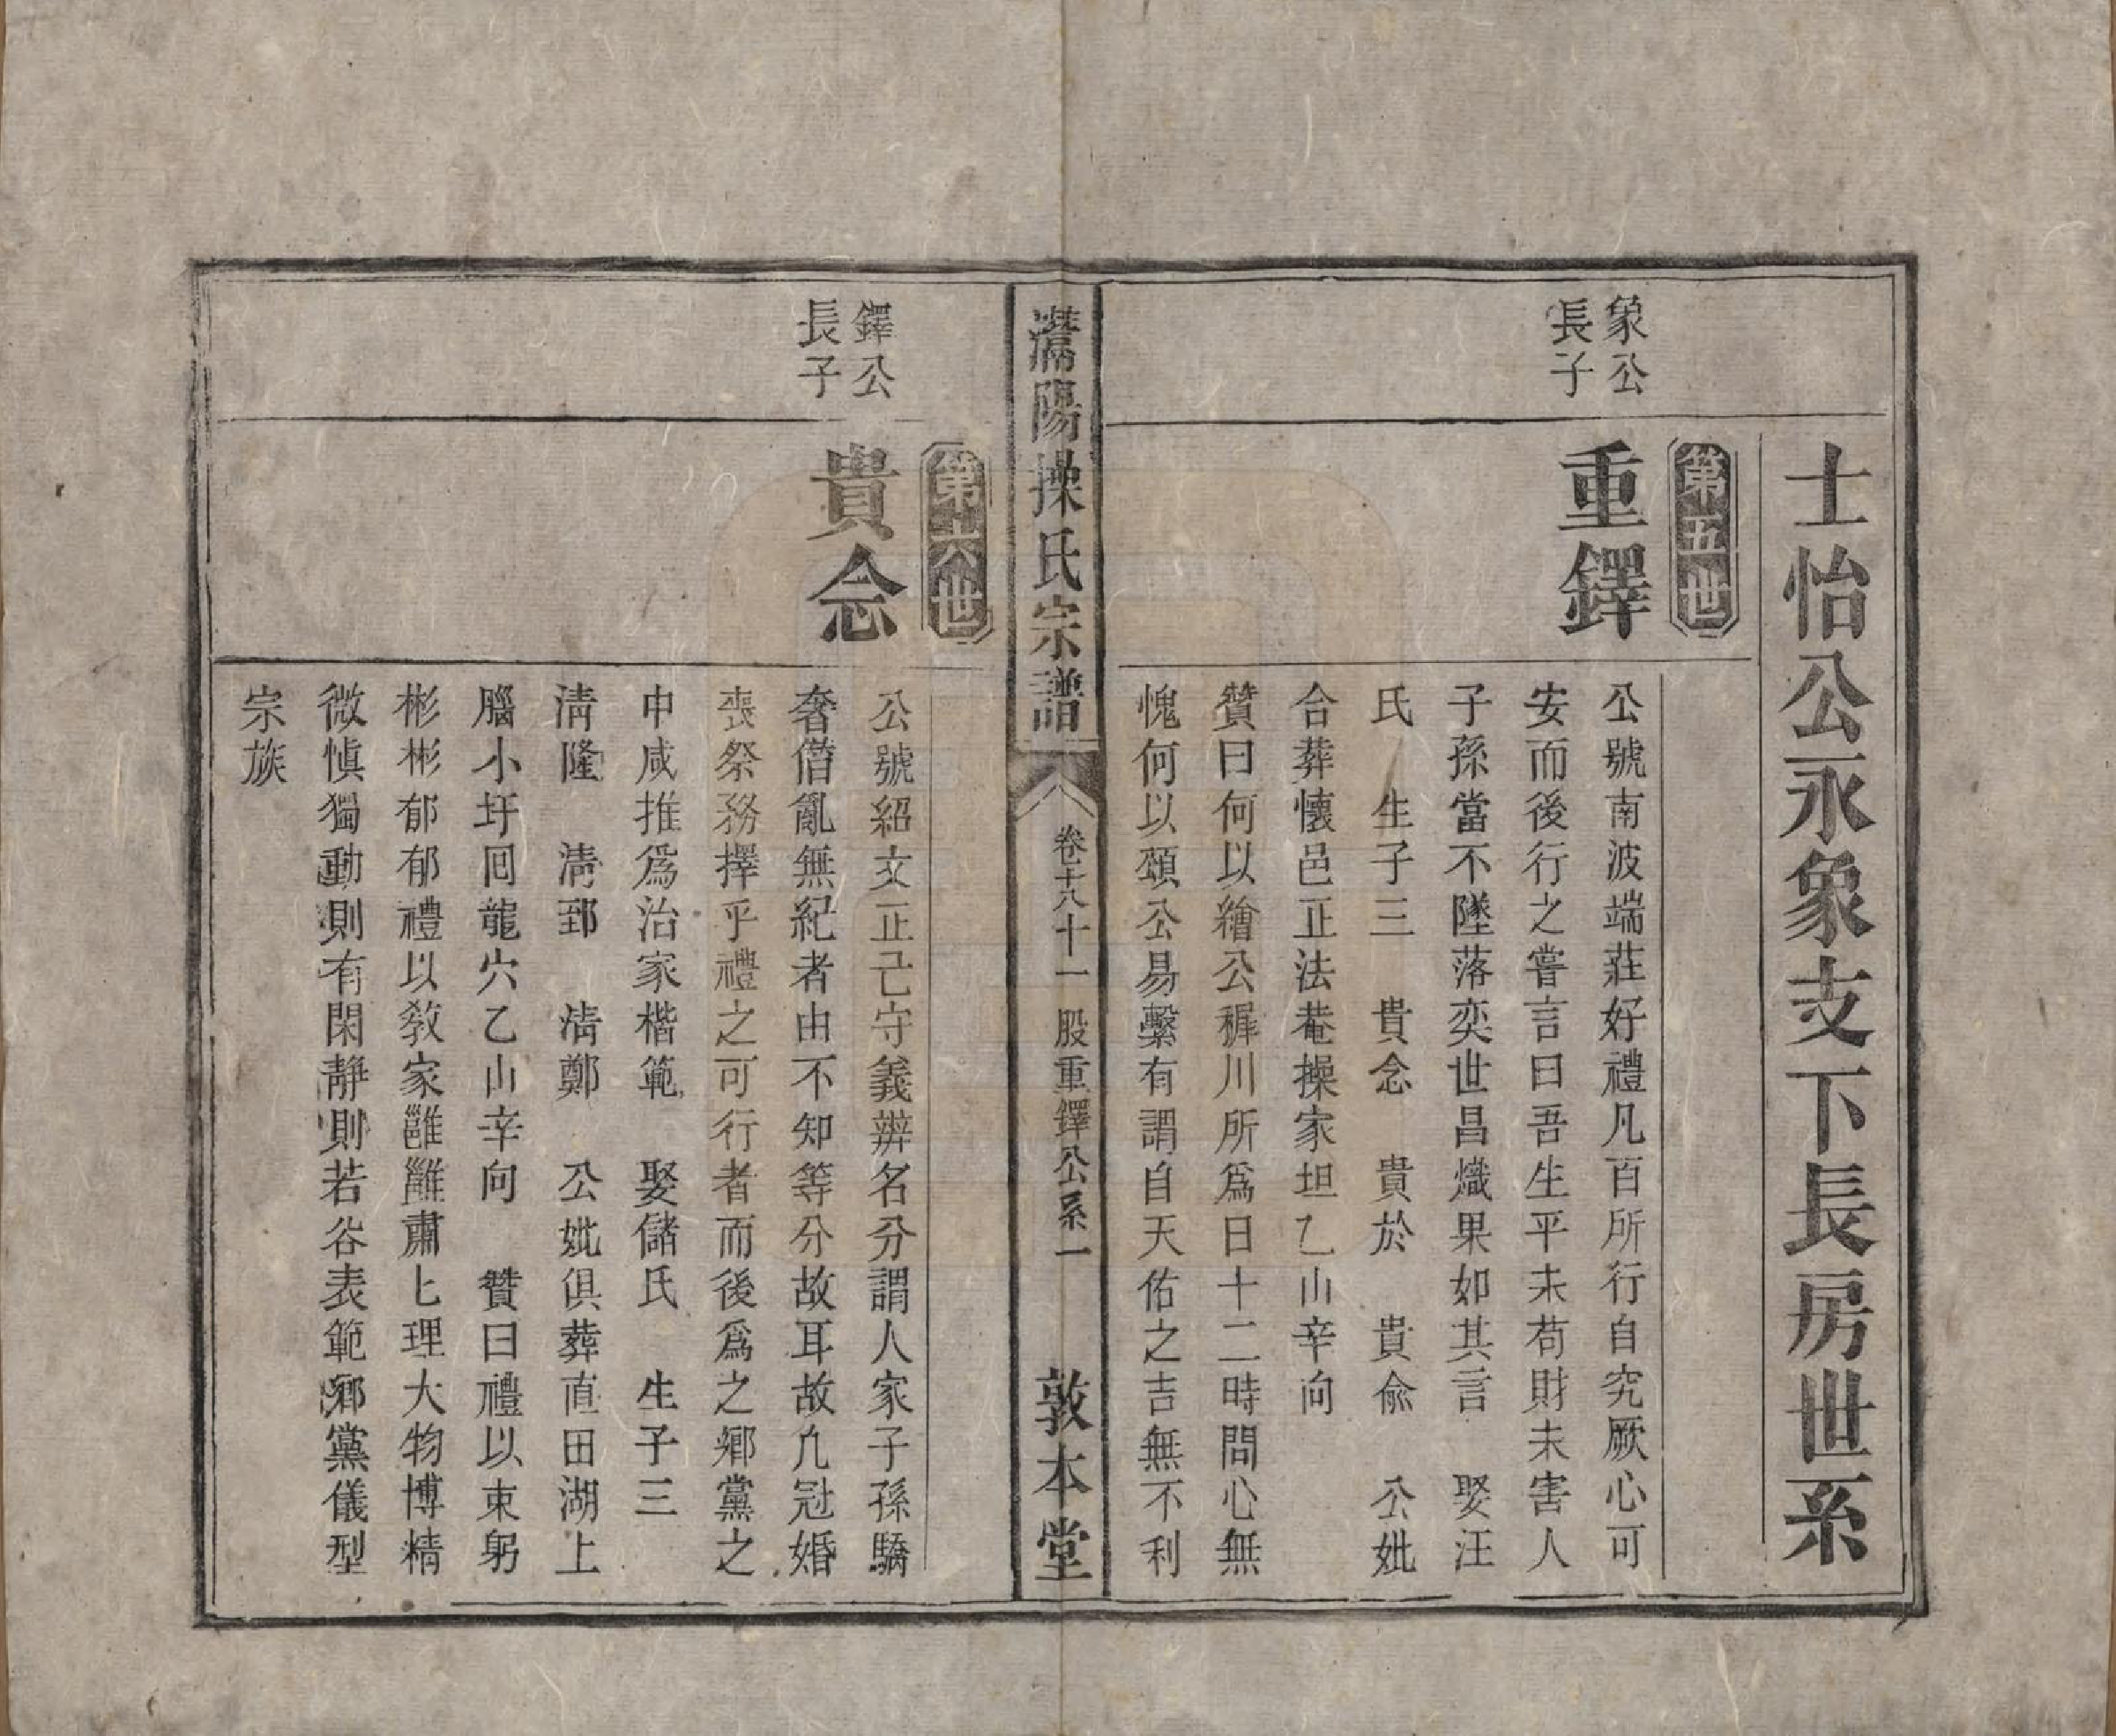 士怡公永象支下長房世系
第五世
象公
長子
重鐸
公號南波端莊好禮凡百所行自究厥心可
安而後行之嘗言曰吾生平未苟財未害人
子孫當不墜落奕世昌熾果如其言　娶汪
氏　生子三　貴念　貴於　貴俞　公妣
合葬懷邑正法菴操家坦乙山辛向
贊曰何以繪公穉川所爲日十二時問心無
愧何以頌公易繫有謂自天佑之吉無不利
灊陽操氏宗譜
卷十八　十一股重鐸公系一
敦本堂
第六世
鐸公
長子
貴念
公號紹文正己守義辨名分謂人家子孫驕
奢僭亂無紀者由不知等分故耳故凢冠婚
喪祭務擇乎禮之可行者而後爲之鄉黨之
中咸推爲治家楷範　娶儲氏　生子三
淸隆　淸郅　淸鄭　公妣俱葬直田湖上
腦小圩囘龍穴乙山辛向　贊曰禮以束躬
彬彬郁郁禮以敎家雝雝肅肅七理大物博精
微愼獨動則有閑靜則若谷表範鄉黨儀型
宗族